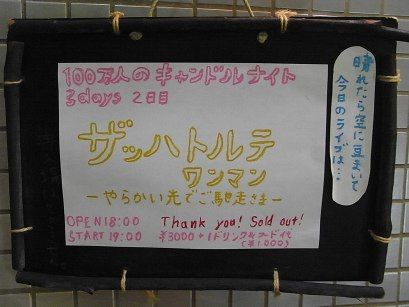 晴れたら空に豆まいて
今日のライブは…
100万人のキャンドルナイト
3days 2日目
ザッハトルテ
ワンマン
ーやらかい光でご馳走さまー
OPEN 18:00 Thank you! Sold out!
START 19:00 ¥3000+1ドリンクフード代
(¥1,000)